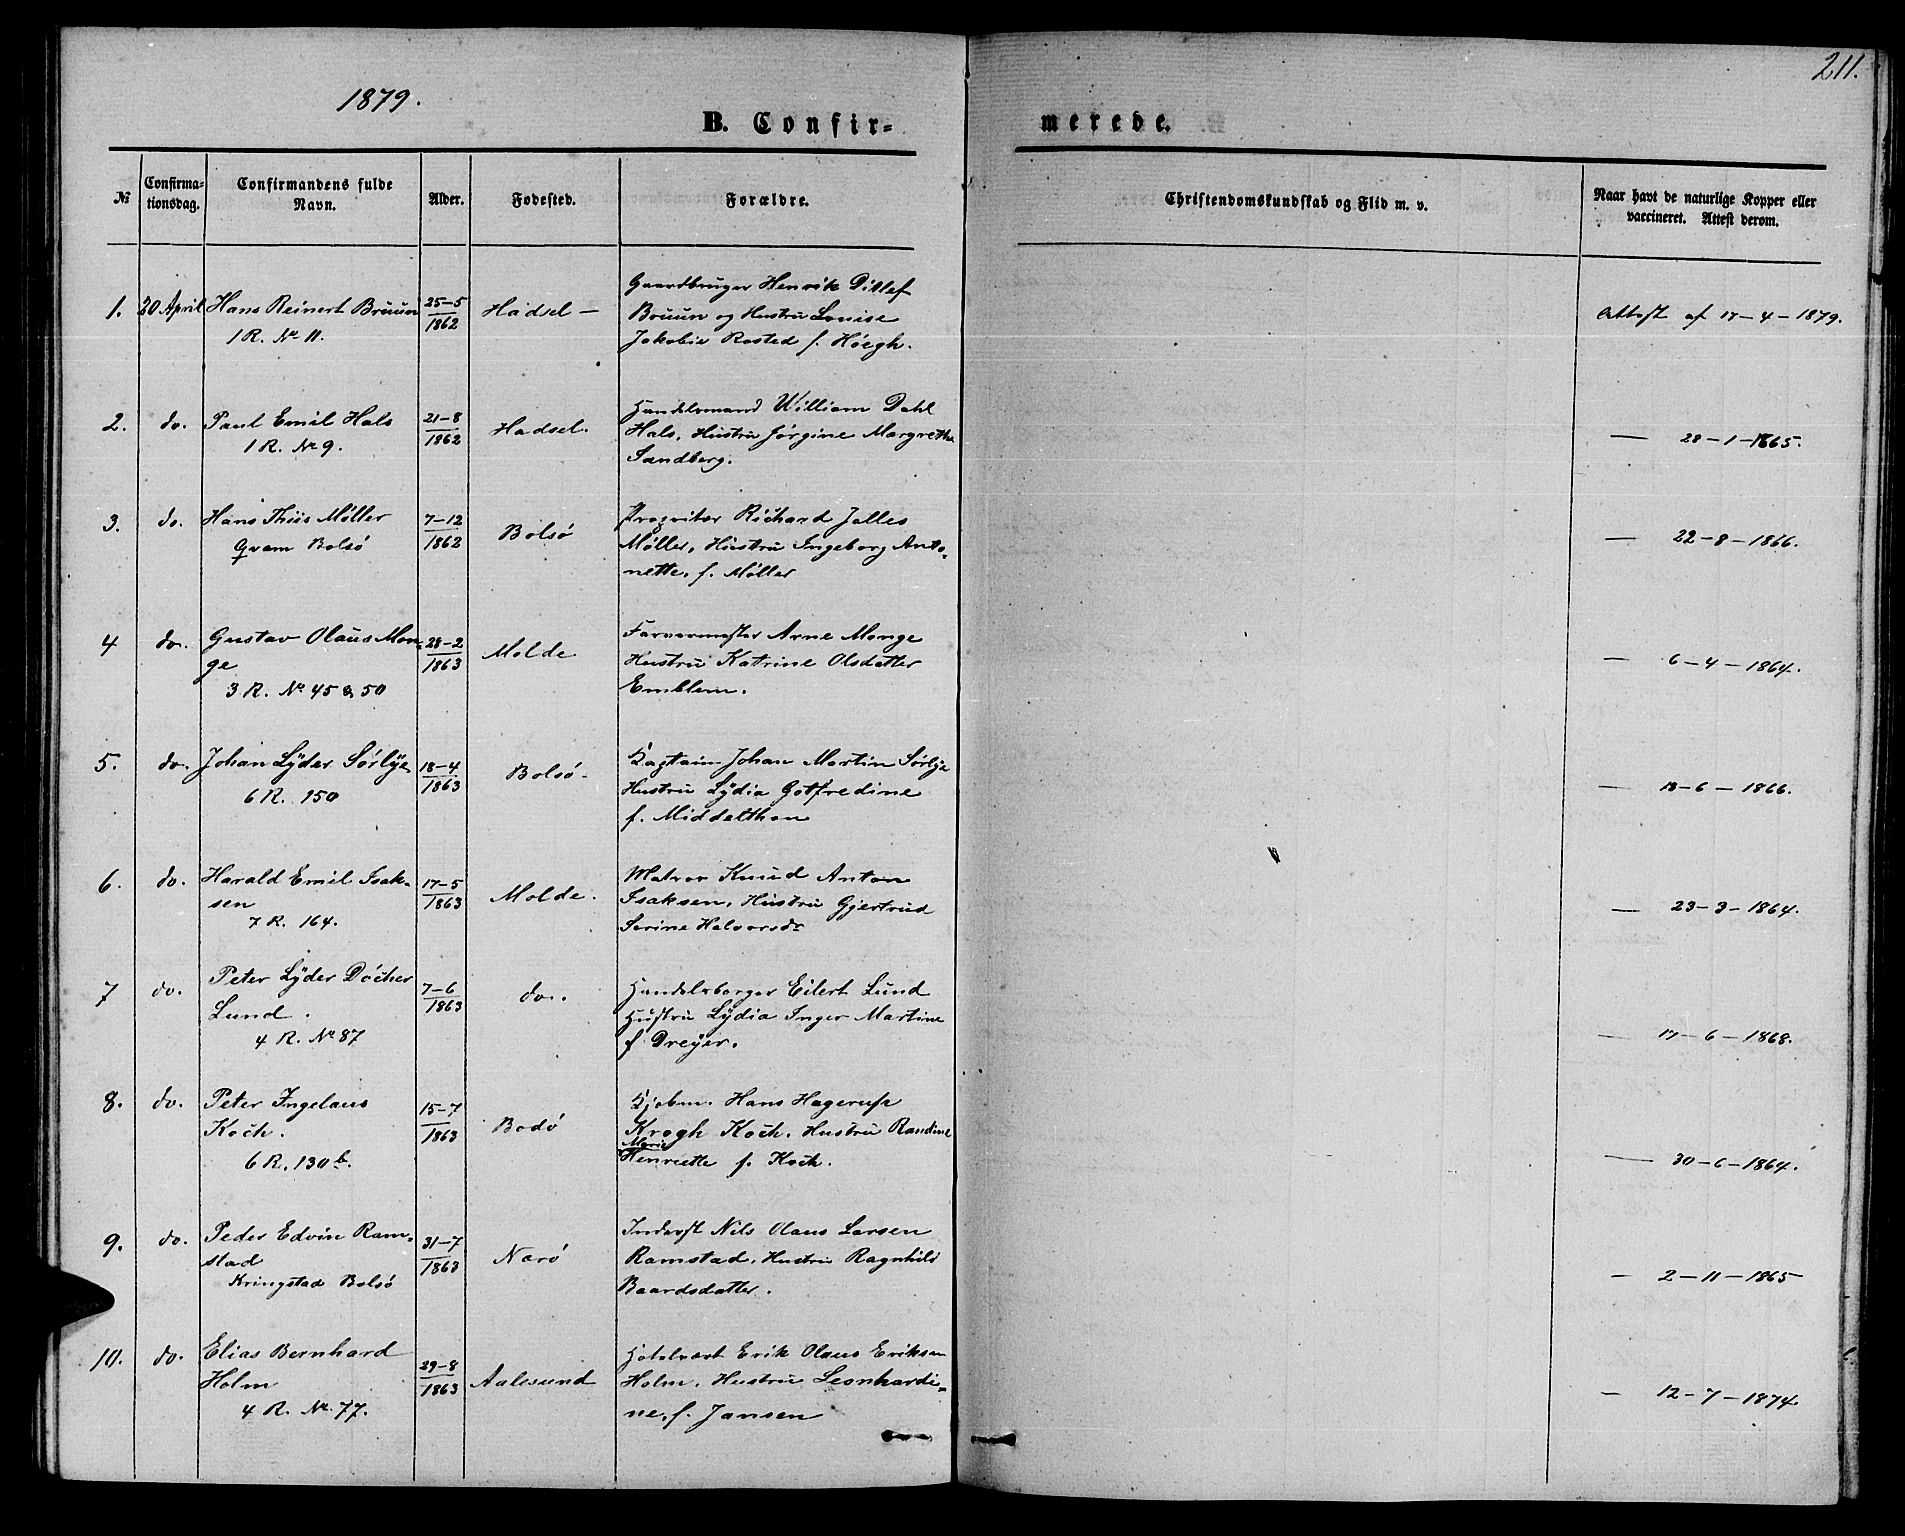 1879.
211.
B. Confir-
merede.
№
Confirma-
tionsdag.
Confirmandens fulde
Navn.
Alder.
Fødested.
Forældre.
Christendomskundskab og Flid m. v.
Naar havt de naturlige Kopper eller
vaccineret. Attest derom.
1. 20 April Hans Reinert Bruun 25-5 1862 Hadsel -
1 R. No 11.
Gaardbruger Henrik Ditlef
Bruun og Hustru Louise
Jakobie Rosted f. Høegh.
Attest af 17-4-1879.
2. do. Paul Emil Hals 21-8 1862 Hadsel.
1 R. No 9.
Handelsmand William Dahl
Hals, Hustru Jørgine Margrethe
Sandberg.
— 28-1-1865.
3. do. Hans Thiis Møller 7-12 1862 Bolsø
Qvam Bolsø
Propritær Richard Jelles
Møller, Hustru Ingeborg Anto-
nette, f. Møller
— 22-8-1866.
4 do. Gustav Olaus Mon-
ge 28-2 1863 Molde
3 R. No 45 & 50
Farvermester Arne Monge
Hustru Katrine Olsdatter
Emblem.
— 6-4-1864.
5. do. Johan Lÿder Sörlÿe 18-4 1863 Bolsö-
6 R. 150
Kaptain Johan Martin Sörlye
Hustru Lÿdia Gotfredine
f. Middelthon
— 18-6-1866.
6. do. Harald Emil Isak-
sen 17-5 1863 Molde.
7 R. 164.
Matros Knud Anton
Isaksen, Hustru Gjertrud
Serine Halvorsdr
— 23-3-1864.
7 do. Peter Lÿder Döcher
Lund. 7-6 1863 do.
4 R. No 87
Handelsborger Eilert Lund
Hustru Lÿdia Inger Martine
f Dreÿer.
— 17-6-1868.
8. do. Peter Ingelaus
Koch. 15-7 1863 Bodö
6 R. 130 b.
Kjøbm. Hans Hagerup
Krogh Koch, Hustru Randine
Marie
Henriette f. Koch.
— 30-6-1864.
9. do. Peder Edvin Ram-
stad 31-7 1863 Narö
Kringstad Bolsö
Inderst Nils Olaus Larsen
Ramstad, Hustru Ragnhild
Baardsdatter.
— 2-11-1865
10. do. Elias Bernhard
Holm 29-8 1863 Aalesund
4 R. No 77.
Hotelvært Erik Olaus Eriksen
Holm, Hustru Leonhardi-
ne, f. Jansen
— 12-7-1874.